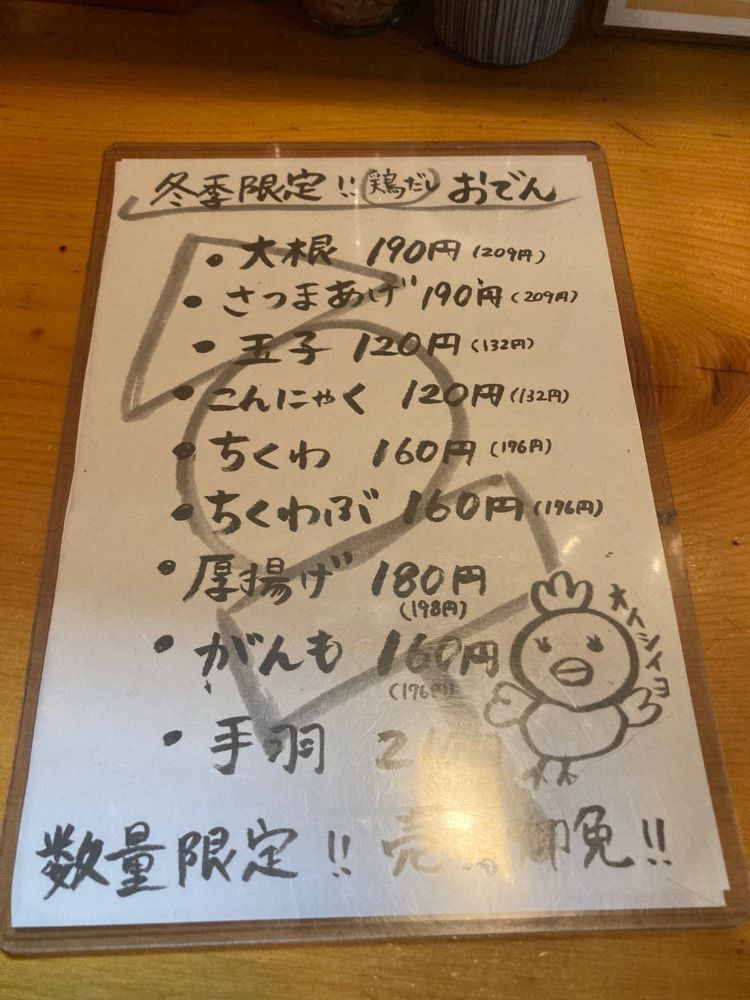 冬季限定!! 鶏だし おでん
・大根 190円(209円)
・さつまあげ 190円(209円)
・玉子 120円(132円)
・こんにゃく 120円(132円)
・ちくわ 160円(176円)
・ちくわぶ 160円(176円)
・厚揚げ 180円
(198円)
・がんも 160円
(176円)
・手羽
オイシイヨ
数量限定!! 売 御免!!